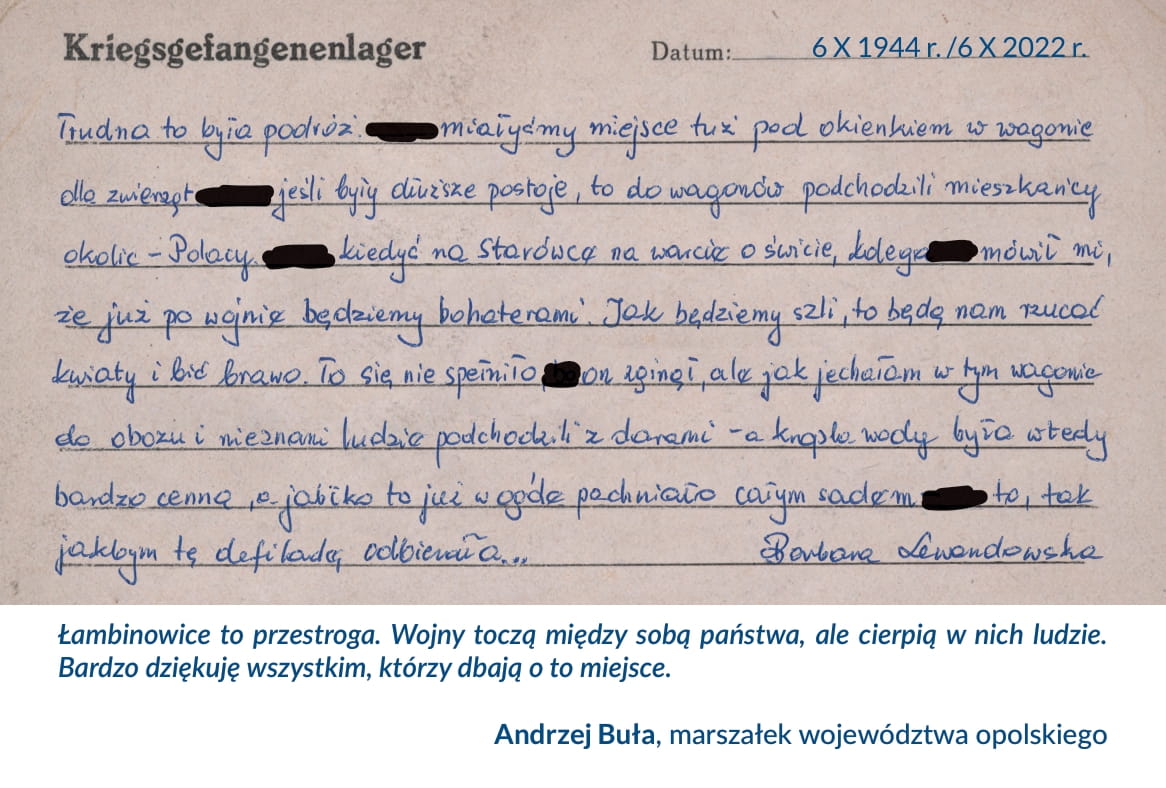 Kriegsgefangenenlager Datum: 6 X 1944 r. /6 X 2022 r.
Trudna to była podróż. miałyśmy miejsce tuż pod okienkiem w wagonie
dla zwierząt jeśli były dłuższe postoje, to do wagonów podchodzili mieszkańcy
okolic – Polacy. kiedyś na Starówce na warcie o świcie, kolega mówił mi,
że już po wojnie będziemy bohaterami. Jak będziemy szli, to będą nam rzucać
kwiaty i bić brawo. To się nie spełniło, on zginął, ale jak jechałam w tym wagonie
do obozu i nieznani ludzie podchodzili z darami – a kropla wody była wtedy
bardzo cenna, a jabłko to już w ogóle pachniało całym sadem to, tak
jakbym tę defiladę odbierała...
Barbara Lewandowska
Łambinowice to przestroga. Wojny toczą między sobą państwa, ale cierpią w nich ludzie.
Bardzo dziękuję wszystkim, którzy dbają o to miejsce.
Andrzej Buła, marszałek województwa opolskiego